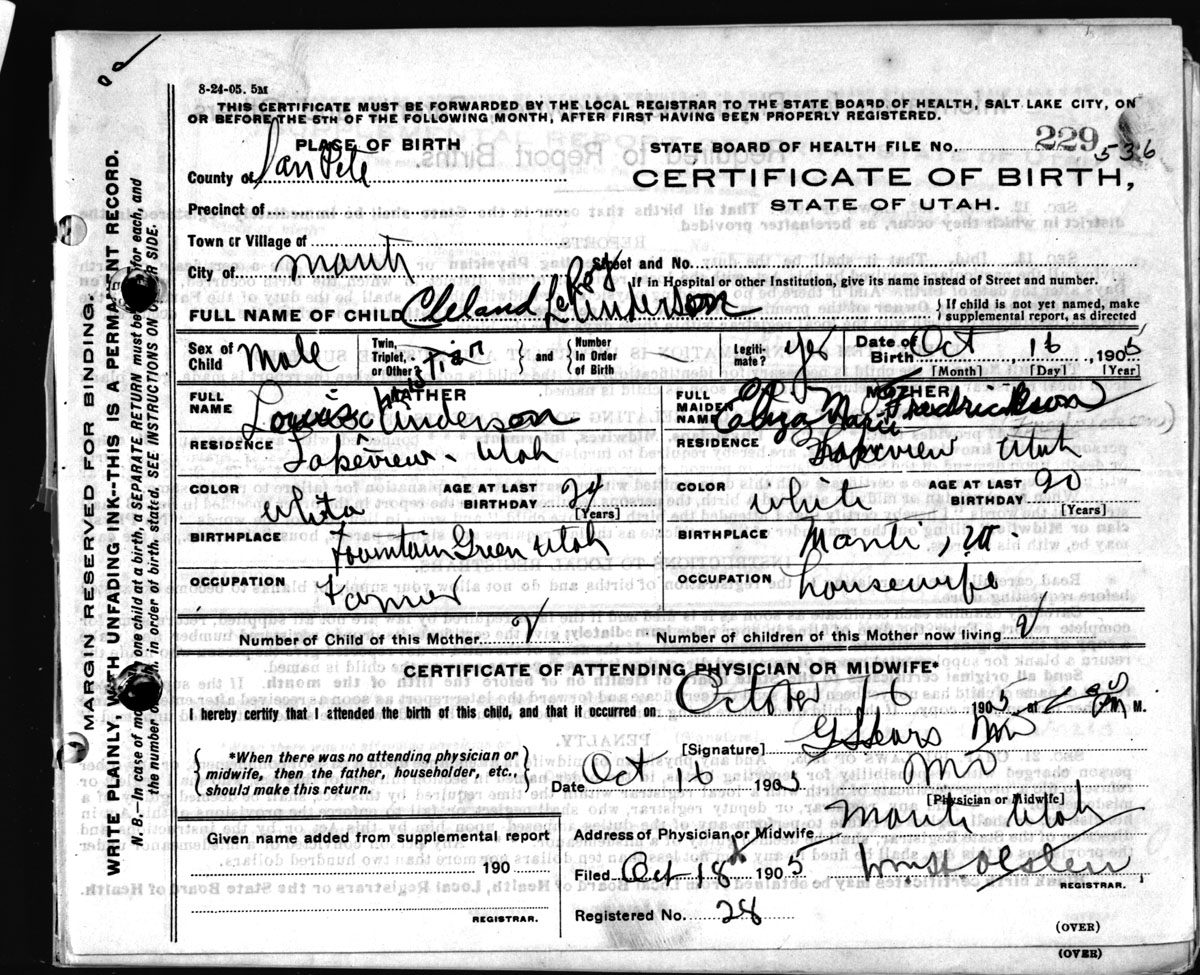 8-24-05. 5M
THIS CERTIFICATE MUST BE FORWARDED BY THE LOCAL REGISTRAR TO THE STATE BOARD OF HEALTH, SALT LAKE CITY, ON
OR BEFORE THE 5TH OF THE FOLLOWING MONTH, AFTER FIRST HAVING BEEN PROPERLY REGISTERED.
PLACE OF BIRTH
STATE BOARD OF HEALTH FILE No. 229 536
County of SanPete
CERTIFICATE OF BIRTH,
STATE OF UTAH.
Precinct of
Town or Village of
City of Manti Street and No.
If in Hospital or other Institution, give its name instead of Street and number.
FULL NAME OF CHILD Cleland Le Roy Anderson { If child is not yet named, make supplemental report, as directed
Sex of Child Male Twin, Triplet, or Other? } and { Number in Order of Birth Legiti-mate? yes Date of Birth Oct 16 1905
[Month] [Day] [Year]
FATHER
FULL NAME Louis Anderson
MOTHER
FULL MAIDEN NAME Eliza Marie Fredrickson
RESIDENCE Lakeview - Utah
RESIDENCE Lakeview Utah
COLOR White AGE AT LAST BIRTHDAY 24 [Years]
COLOR White AGE AT LAST BIRTHDAY 20 [Years]
BIRTHPLACE Fountain Green Utah
BIRTHPLACE Manti, Ut.
OCCUPATION Farmer
OCCUPATION housewife
Number of Child of this Mother 2 Number of children of this Mother now living 2
CERTIFICATE OF ATTENDING PHYSICIAN OR MIDWIFE*
I hereby certify that I attended the birth of this child, and that it occurred on October 16 1905 at M.
*When there was no attending physician or midwife, then the father, householder, etc., should make this return.
[Signature] G L Sears MD
Date Oct 16 1905 MD
[Physician or Midwife]
Given name added from supplemental report
190
REGISTRAR.
Address of Physician or Midwife Manti Utah
Filed Oct 18 1905 Wm H. Olsten
REGISTRAR.
Registered No. 28
(OVER)
(OVER)
MARGIN RESERVED FOR BINDING.
WRITE PLAINLY, WITH UNFADING INK--THIS IS A PERMANENT RECORD.
N. B.--In case of more than one child at a birth, a SEPARATE RETURN must be made for each, and
the number of each, in order of birth, stated. SEE INSTRUCTIONS ON OTHER SIDE.